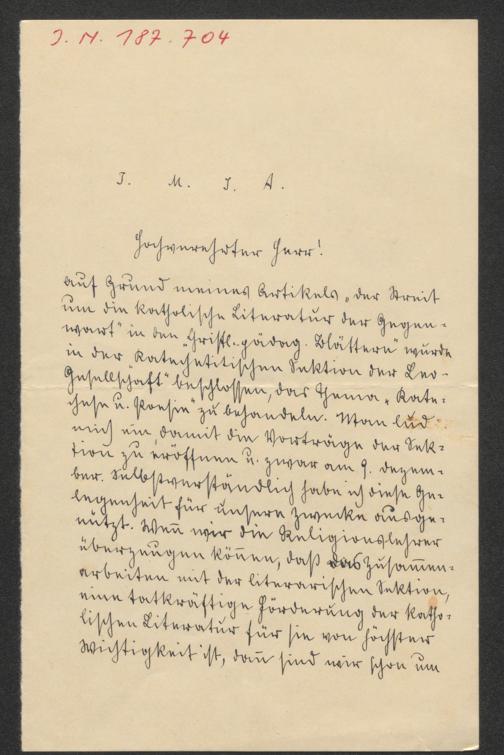 J. N. 187.704
J. M. J. A.
Hochverehrter Herr!
Auf Grund meines Artikels „der Streit
um die katholische Literatur der Gegen-
wart“ in den „Christl.-pädag. Blättern“ wurde
in der Katechetitischen Sektion der Leo-
Gesellschaft“ beschlossen, das Thema „Kate-
chese u. Poesie“ zu behandeln. Man lud
mich ein, damit die Vorträge der Sek-
tion zu eröffnen u. zwar am 9. Dezem-
ber. Selbstverständlich habe ich diese Ge-
legenheit für unsere Zwecke ausge-
nützt. Weñ wir die Religionslehrer
überzeugen köñen, daß das Zusam̄en-
arbeiten mit der literarischen Sektion,
eine tatkräftige Förderung der katho-
lischen Literatur für sie von höchster
Wichtigkeit ist, dañ sind wir schon um